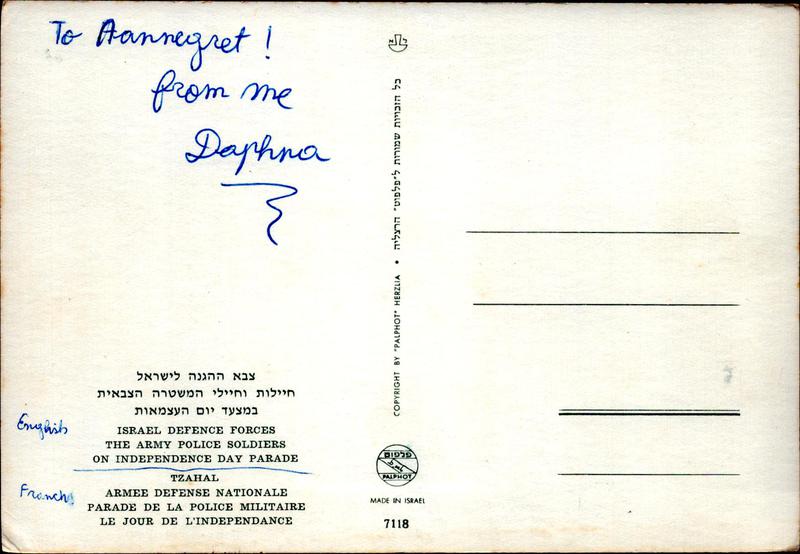 To Aannegret !
from me
Daphna
צבא ההגנה לישראל
חיילות וחיילי המשטרה הצבאית
במצעד יום העצמאות
English
ISRAEL DEFENCE FORCES
THE ARMY POLICE SOLDIERS
ON INDEPENDENCE DAY PARADE
Franch
TZAHAL
ARMEE DEFENSE NATIONALE
PARADE DE LA POLICE MILITAIRE
LE JOUR DE L'INDEPENDANCE
כל הזכויות שמורות ל״פלפוט״ הרצליה • COPYRIGHT BY "PALPHOT" HERZLIA
פלפוט
PALPHOT
MADE IN ISRAEL
7118